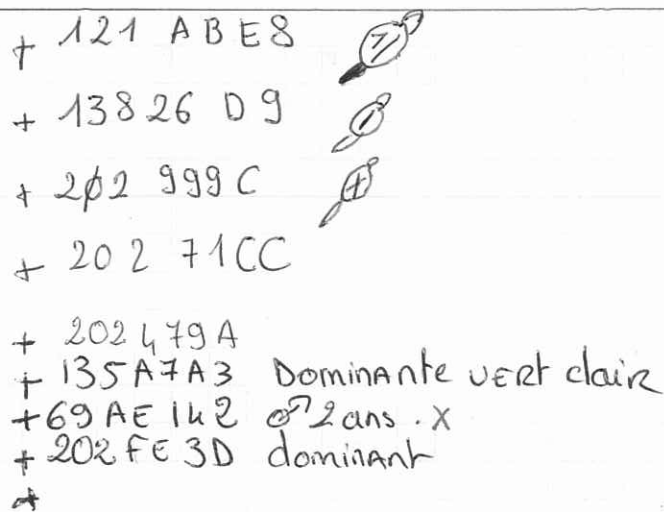 + 121 ABE8
+ 13826 D9
+ 202 999C
+ 202 71CC
+ 202 479A
+ 135A7A3 Dominante vert clair
+ 69AE142 ♂ 2 ans . X
+ 202FE3D dominant
+